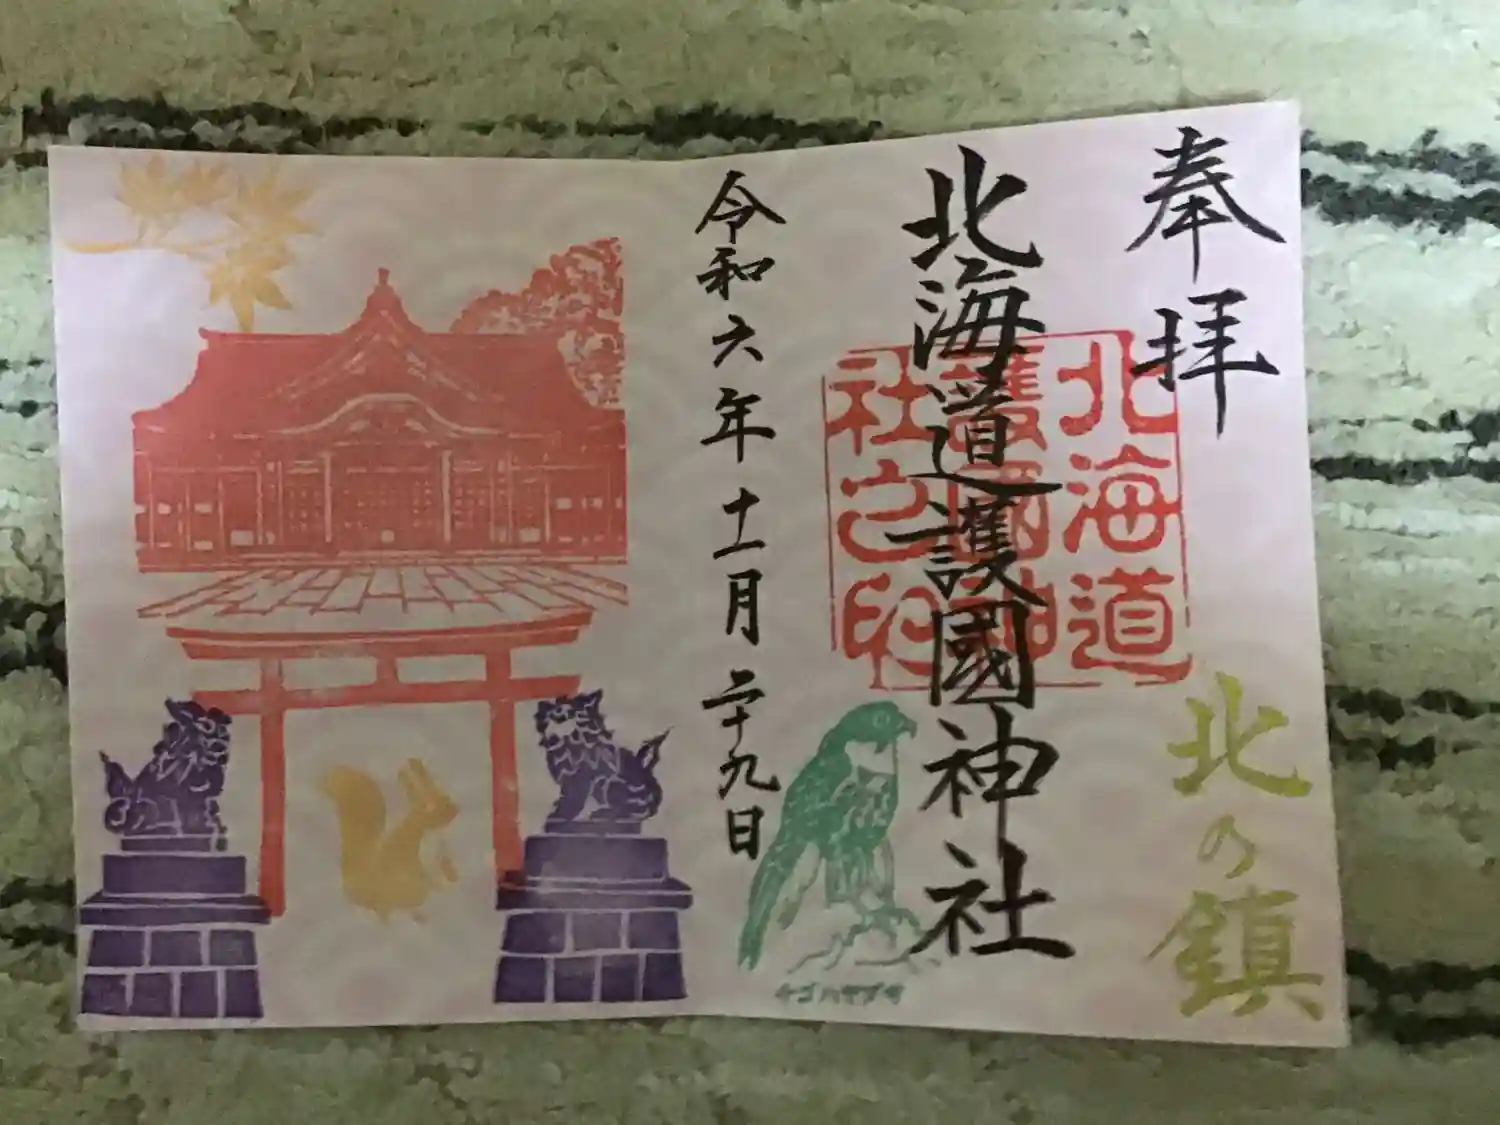 奉拝
北海道護國神社
北海道
護國神
社之印
北の鎮
令和六年十一月二十九日
チゴハヤブサ